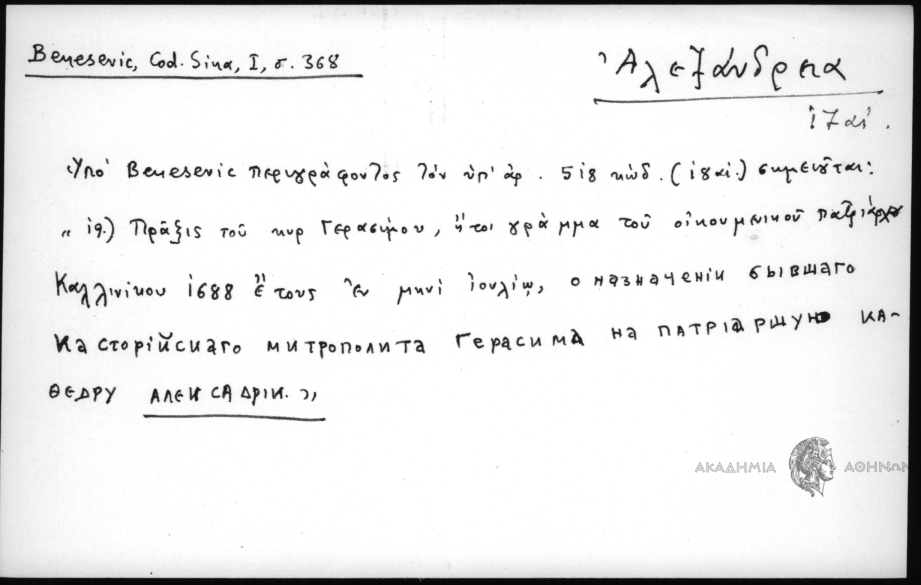 Benesevic, Cod. Sina, I, σ. 368
Ἀλεξάνδρεια
17 αἰ.
Ὑπὸ Benesevic περιγράφοντος τὸν ὑπ' ἀρ. 518 κώδ. (18 αἰ.) σημειοῦται:
„ 19.) Πρᾶξις τοῦ κυρ Γερασίμου, ἤτοι γράμμα τοῦ οἰκουμενικοῦ πατριάρχου
Καλλινίκου 1688 ἔτους ἐν μηνὶ ἰουλίῳ, о назначеніи бывшаго
Касторійскаго митрополита Герасима на патріаршую ка-
ѳедру Алексадріи. „
ΑΚΑΔΗΜΙΑ ΑΘΗΝΩΝ